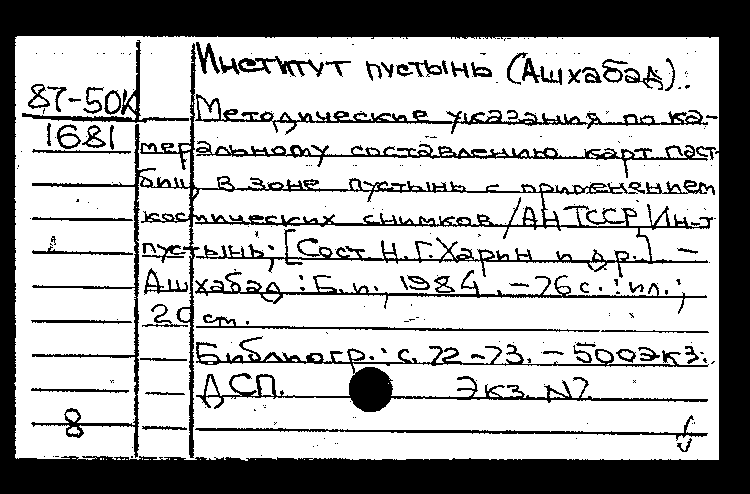 Институт пустынь (Ашхабад).
87-50К
1681
Методические указания по ка-
меральному составлению карт паст-
бищ в зоне пустынь с применением
космических снимков / АН ТССР, Ин-т
пустынь; [Сост. Н. Г. Харин и др.]. —
Ашхабад : Б. и., 1984. — 76 с. : ил.;
20 см.
Библиогр.: с. 72-73. — 500 экз.
ДСП. Экз. №
8